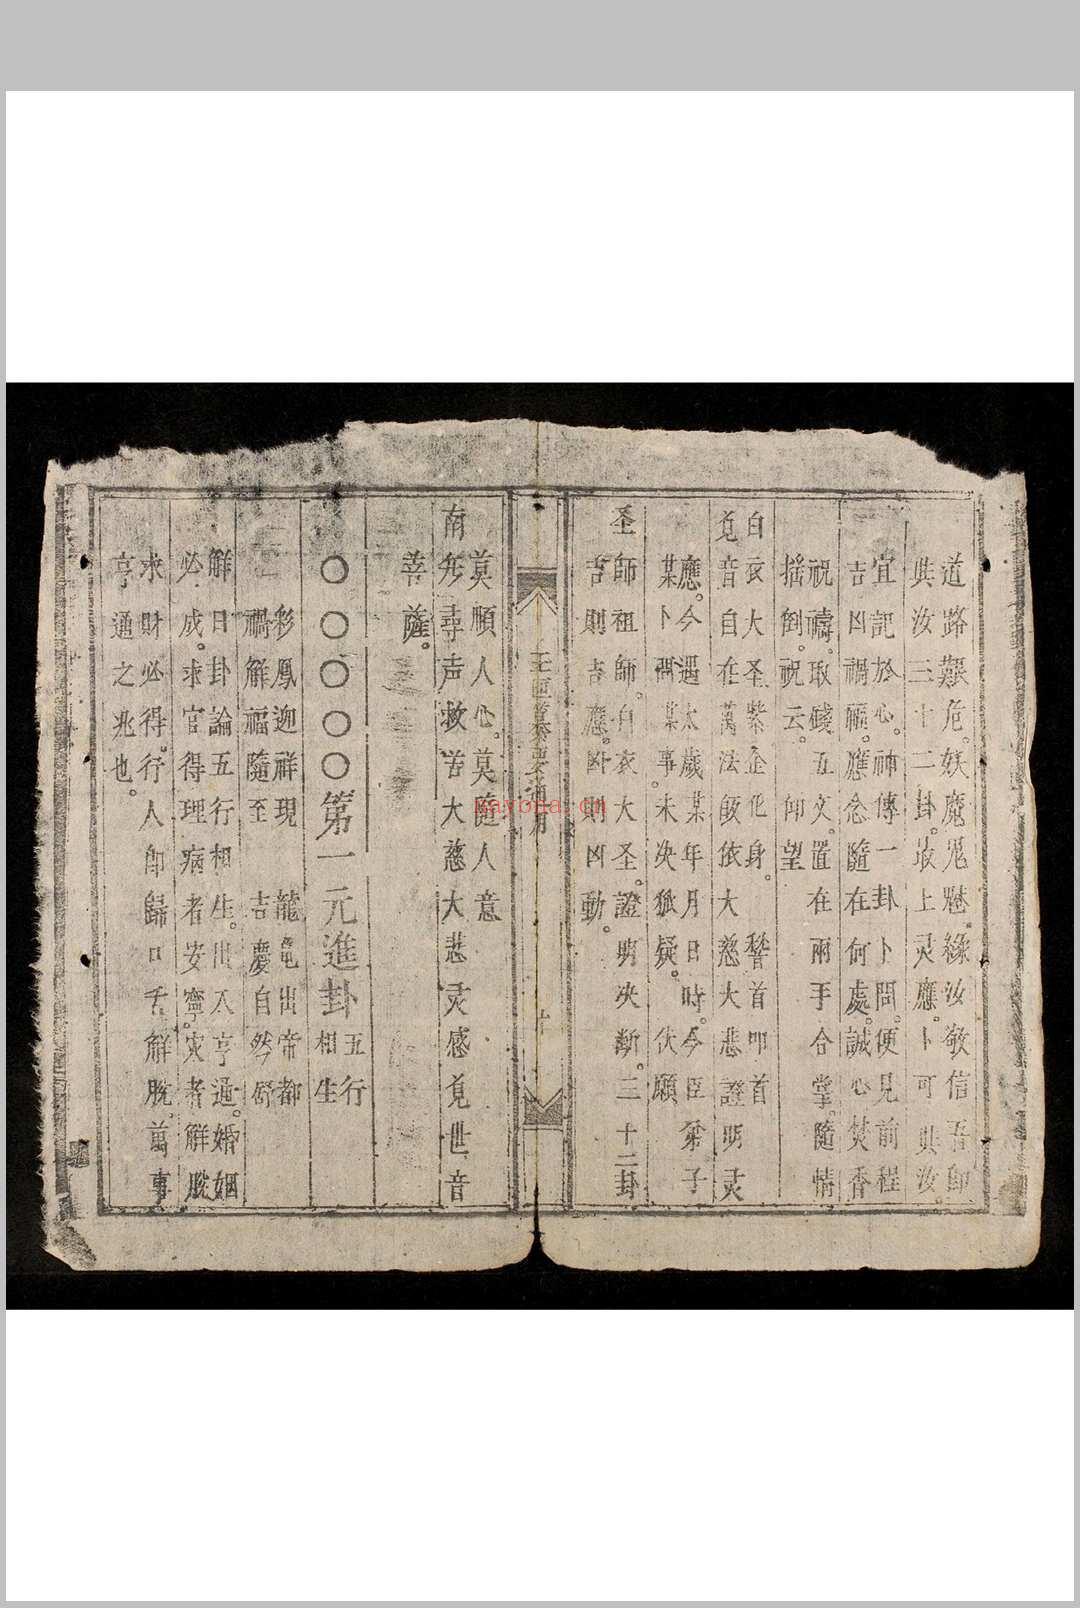 道路艱危。妖魔鬼魅。緣汝敬信吾師
與汝三十二卦。最上灵應。卜可與汝。
宜記於心。神傳一卦卜問。便見前程
吉凶禍福。應念隨在何處。誠心焚香
祝禱。取錢五文。置在兩手合掌。隨情
摇倒。祝云。仰望
白衣大圣紫金化身。 稽首叩首
覓音自在萬法皈依大慈大悲證明灵
應。今遇太歲某年月日時。今臣弟子
某卜爲某事。未決狐疑。伏願
圣師祖師。白衣大圣。證明決斷。三十二卦
吉則吉應。凶則凶動。
莫順人人心。莫隨人意
南无尋声救苦大慈大悲灵感覓世音
菩薩。
○○○○○第一元進卦五行相生
彩鳳迎祥現 龍龟出帝都
禍解福隨至 吉慶自然舒
解曰卦論五行相生。出入亨通。婚姻
必成。求官得理病者安寧。灾者解脫
求財必得。行人即歸口舌解脫。萬事
亨通之兆也。
nayona.cn